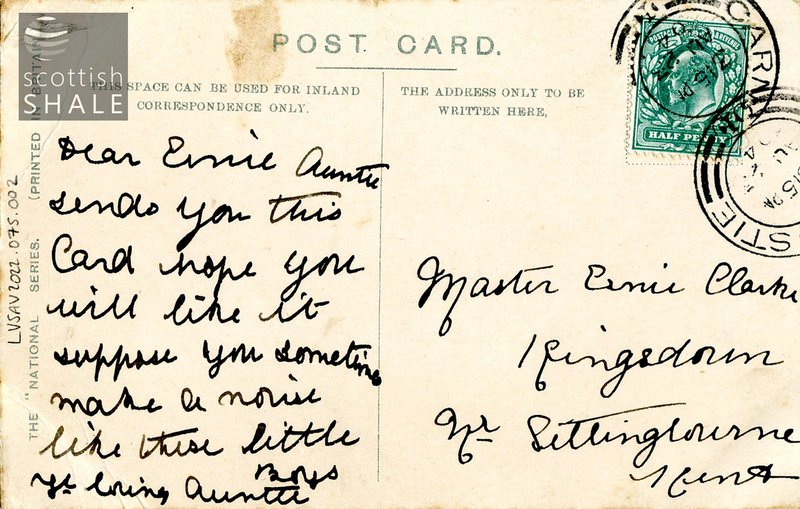 scottish
SHALE
POST CARD.
THIS SPACE CAN BE USED FOR INLAND
CORRESPONDENCE ONLY.
THE ADDRESS ONLY TO BE
WRITTEN HERE,
THE "NATIONAL SERIES. (PRINTED IN BRITAIN
LVSAV2022.075.002
Dear Ernie Auntie
sends you this
Card hope you
will like it
suppose you sometimes
make a noise
like these little
Boys
Yr loving Auntie
POSTAGE
HALF PENNY
Master Ernie Clarke
Kingsdown
Nr Sittingbourne
Kent